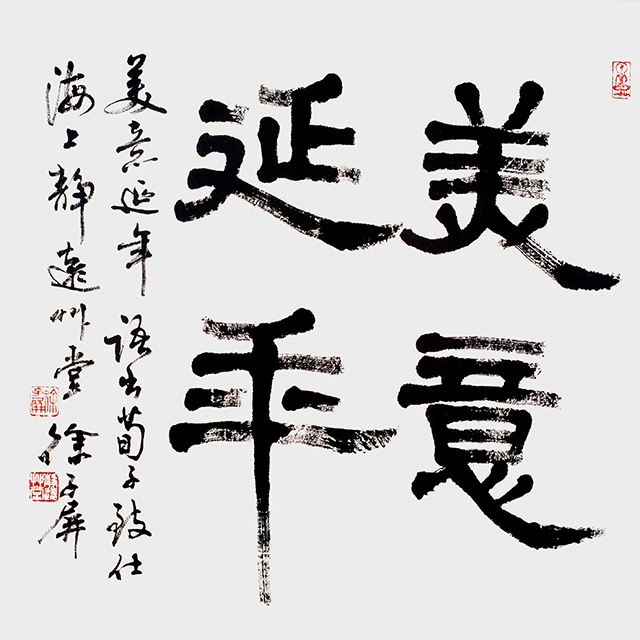 美意
延年
美意延年 语出荀子致仕
海上静远草堂 徐子屏